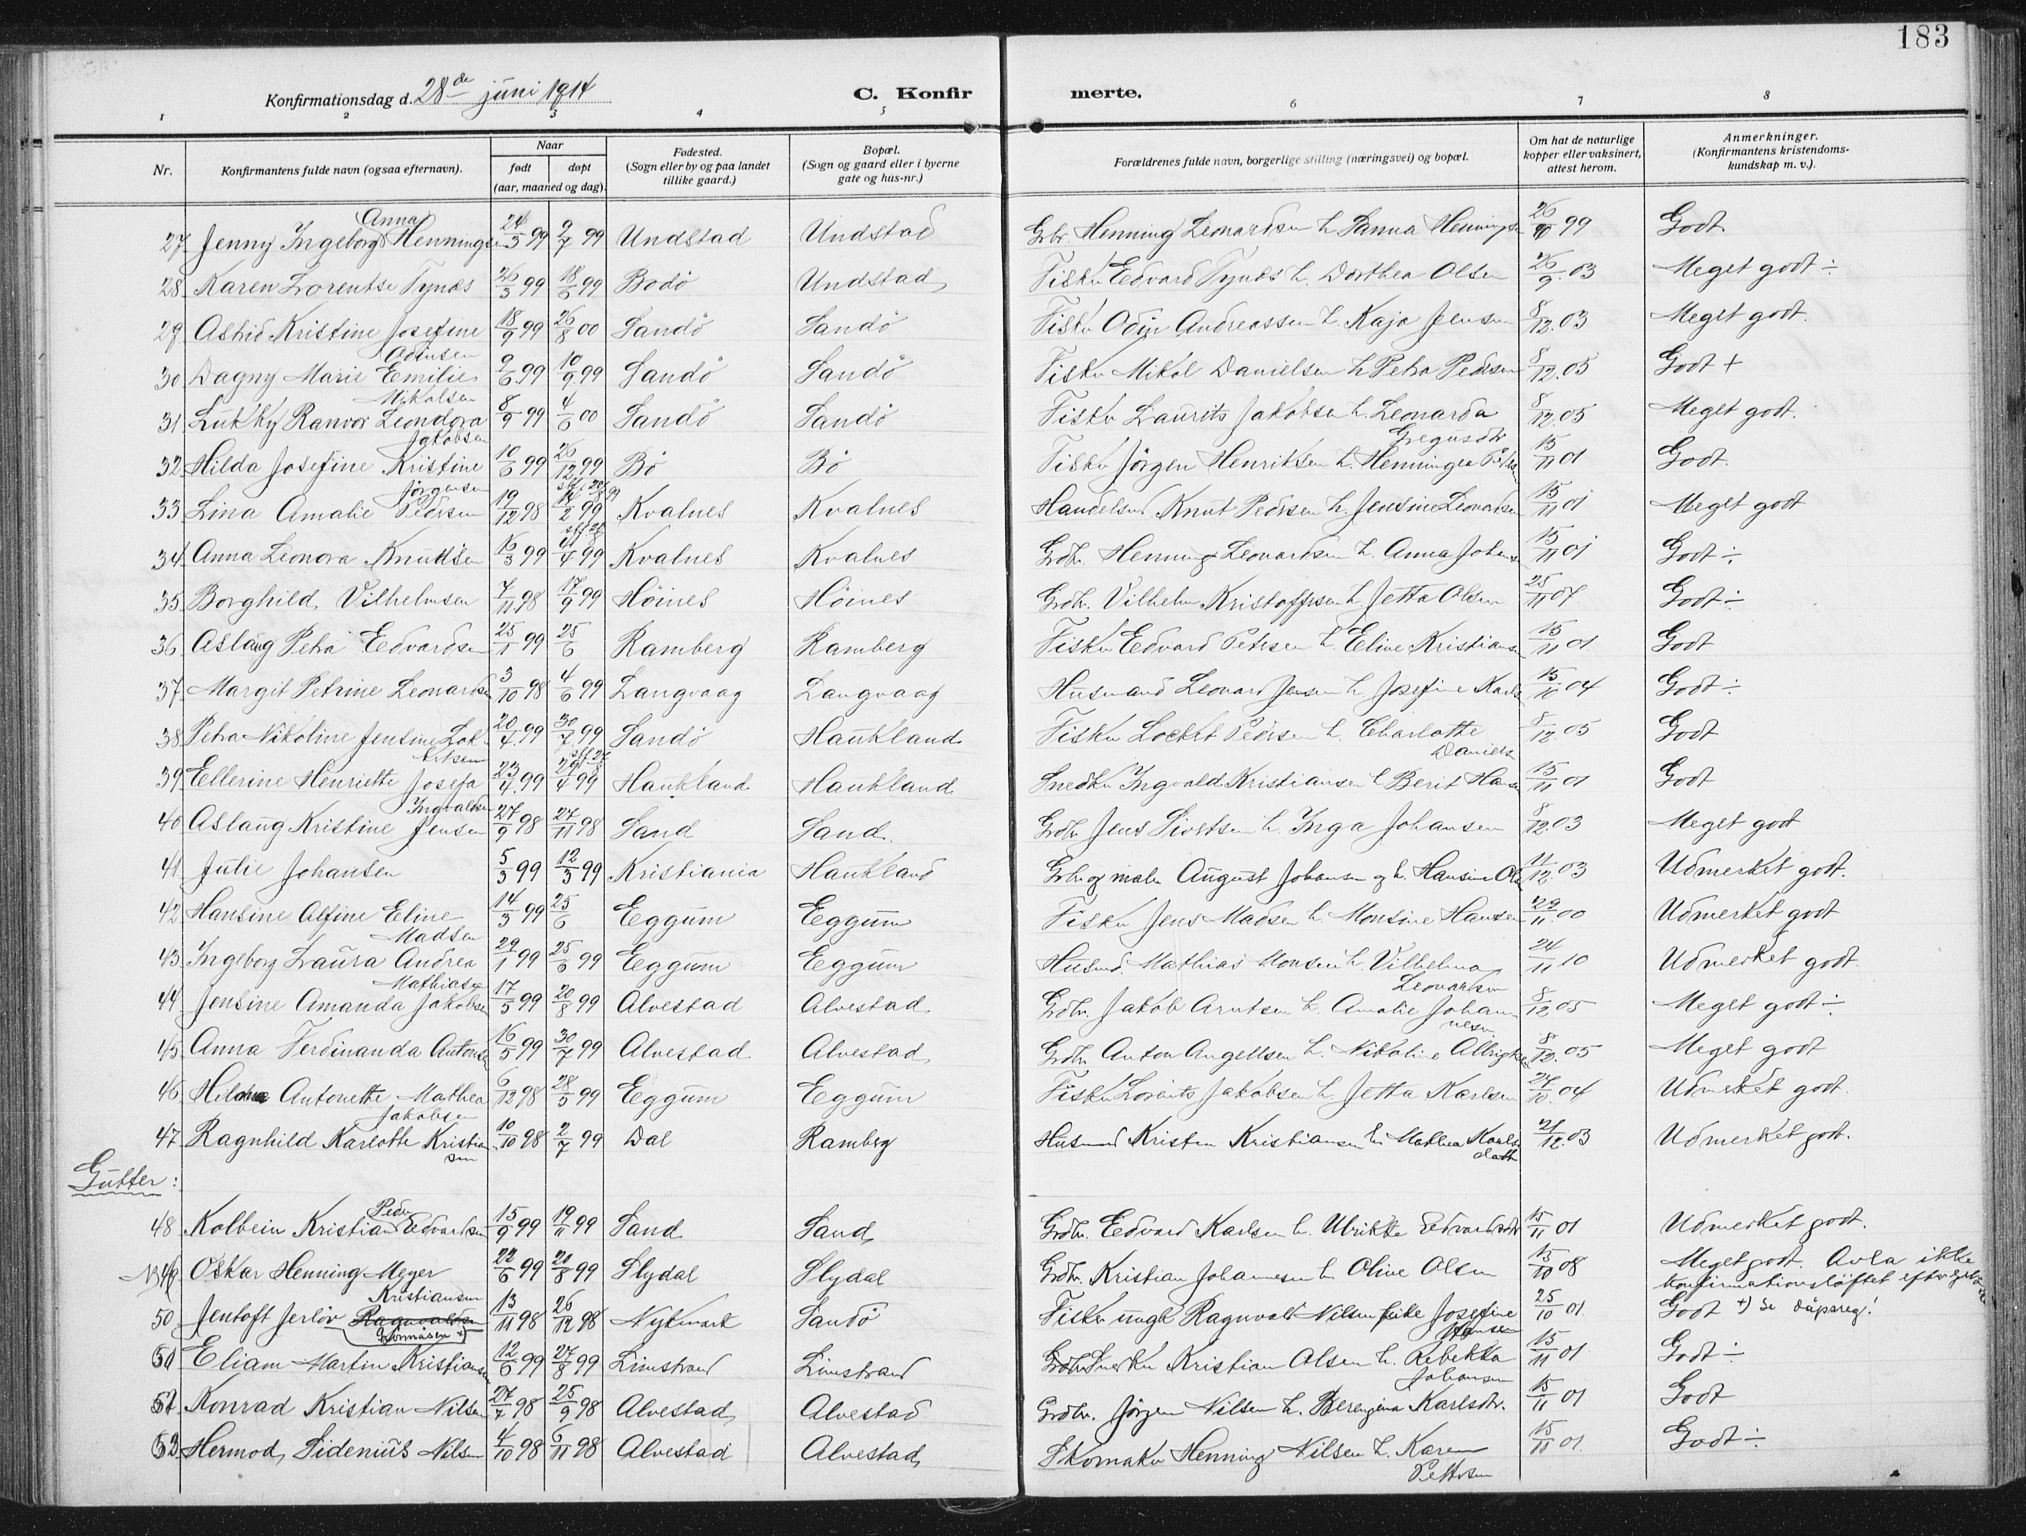 183
Konfirmationsdag d. 28de juni 1914
C. Konfirmerte.
1 2 3 4 5 6 7 8
Nr. Konfirmantens fulde navn (ogsaa efternavn). Naar født døpt (aar, maaned og dag). Fødested. (Sogn eller by og paa landet tillike gaard.) Bopæl. (Sogn og gaard eller i byerne gate og hus-nr.) Forældrenes fulde navn, borgerlige stilling (næringsvei) og bopæl. Om hat de naturlige kopper eller vaksinert, attest herom. Anmerkninger. (Konfirmantens kristendomskundskap m. v.).
27 Jenny Ingeborg Anna Henningsen 24/5 99 2/7 99 Undstad Undstad Grbr. Henning Leonardsen h. Henningsen 99 Godt
28 Karen Lorentse Tynæs 26/3 99 18/6 99 Bodö Undstad Fisker Edvard Tynæs h. Dorthea Olsen 26/9 03 Meget godt ÷
29 Astrid Kristine Josefine Odinsen 18/9 99 26/8 00 Sandö Sandö Fisker Odin Andreassen h. Kaja Jensen 8/12 03 Meget godt.
30 Dagny Marie Emilie Mikalsen 2/6 99 10/9 99 Sandö Sandö Fisker Mikal Danielsen h. Petra Pedersen 8/12 05 Godt +
31 Lukky Ranvor Leondora Jakobsen 8/9 99 4/6 00 Sandö Sandö Fisker Laurits Jakobsen h. Leonarda Gregusdtr 8/12 05 Meget godt.
32 Hilda Josefine Kristine Jörgensen 10/6 99 26/12 99 Bö Bö Fisker Jörgen Henriksen h. Henningea 15/11 01 Godt.
33 Lina Amalie Pedersen 19/12 98 2 99 Kvalnes Kvalnes Handelsmd Knut Pedersen h. Jensine Leonardsen 15/11 01 Meget godt
34 Anna Leonora Knudsen 16/3 99 4 99 Kvalnes Kvalnes Grdbr. Henning Leonardsen h. Anna Johansen 15/11 01 Godt ÷
35 Borghild Vilhelmsen 7/11 98 17/9 99 Höines Höines Grdbr. Vilhelm Kristoffersen h. Jetta Olsen 25/11 07 Godt ÷
36 Aslaug Petra Edvardsen 25/1 99 25/6 Ramberg Ramberg Fisker Edvard Petersen h. Eline Kristiansen 15/11 01 Godt
37 Margit Petrine Leonardsen 3/10 98 4/6 99 Langvaag Langvaag Husmand Leonard Jensen h. Josefine 04 Godt ÷
38 Petra Nikoline Jensine Lokertsen 20/4 99 30/7 99 Sandö Haukland Fisker Lockert Pedersen h. Charlotte Danielsen 8/12 05 Godt
39 Ellerine Henriette Josefa Ingvaldsen 23/4 99 4 99 Haukland Haukland Snedker Ingvald Kristiansen h. Berit Hansen 15/11 01 Godt
40 Aslaug Kristine Jensen 27/9 98 27/11 98 Sand Sand Grdbr. Jens Sivertsen h. Inga Johansen 8/12 03 Meget godt
41 Julie Johansen 5/3 99 12/3 99 Kristiania Haukland Grbr og maler August Johansen og h. Hansine Olsen 11/12 03 Udmerket godt.
42 Hansine Alfine Eline Madsen 14/3 99 25/6 Eggum Eggum Fisker Jens Madsen h. Monsine Hansen 29/11 00 Udmerket godt
43 Ingeborg Laura Andrea Mathiasen 29/1 99 25/6 99 Eggum Eggum Husmd. Mathias Monsen h. Vilhelma Leonardsen 24/11 10 Udmerket godt.
44 Jensine Amanda Jakobsen 17/5 99 20/8 99 Alvestad Alvestad Grdbr. Jakob Arntsen h. Amalie Johannesen 8/12 05 Meget godt ÷
45 Anna Ferdinanda Antonsen 16/5 99 30/7 99 Alvestad Alvestad Grdbr. Anton Angellsen h. Nikoline 8/12 05 Meget godt
46 Antonette Mathea Jakobsen 6/12 98 28/5 99 Eggum Eggum Fisker Jakobsen h. Jetta Karlsen 27/10 04 Udmerket godt.
47 Ragnhild Karlotte Kristiansen 10/10 98 2/7 99 Dal Ramberg Husmand Kristen Kristiansen h. Mathea Karlsdatt 21/12 03 Udmerket godt.
Gutter:
48 Kolbein Kristian Peder Edvardsen 15/9 99 19/11 99 Sand Sand Grdbr. Edvard Karlsen h. Ulrikke Edvardsdtr 15/11 01 Udmerket godt.
49 Oskar Henning Meyer Kristiansen 22/6 99 20/8 99 Slydal Slydal Grdbr. Kristian Johannesen h. Oline Olsen 15/10 08 Meget godt. Avla ikke konfirmationsløftet
50 Jentoft Jerlöv Ragnvaldsen 13/11 98 26/12 98 Nykmark Sandö Fisker ungk Ragnvald Nilsen pike Josefine Hansen 25/10 01 Godt +) Se dåpsreg!
51 Eliam Martin Kristiansen 12/6 99 27/8 99 Limstrand Limstrand Snedker Kristian Olsen h. Rebekka Johansen 15/11 01 Godt ÷
52 Konrad Kristian Nilsen 27/7 98 25/9 98 Alvestad Alvestad Grdbr. Jörgen Nilsen h. Beregina Karlsdtr. 15/11 01 Godt
53 Hermod Sidenius Nilsen 4/10 98 6/11 98 Alvestad Alvestad Skomaker Henning Nilsen h. Karen Pettersen 15/11 01. Godt ÷